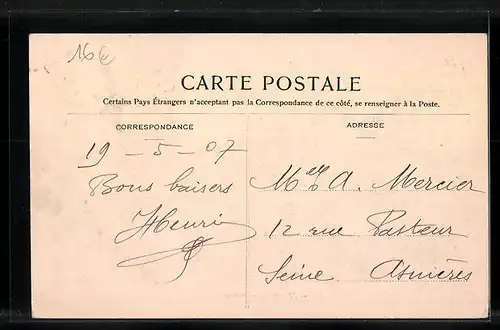 16€
CARTE POSTALE
Certains Pays Étrangers n'acceptent pas la Correspondance de ce côté, se renseigner à la Poste.
CORRESPONDANCE
19 - 5 - 07
Bons baisers
Henri
ADRESSE
A. Mercier
12 rue Pasteur
Seine Asnières